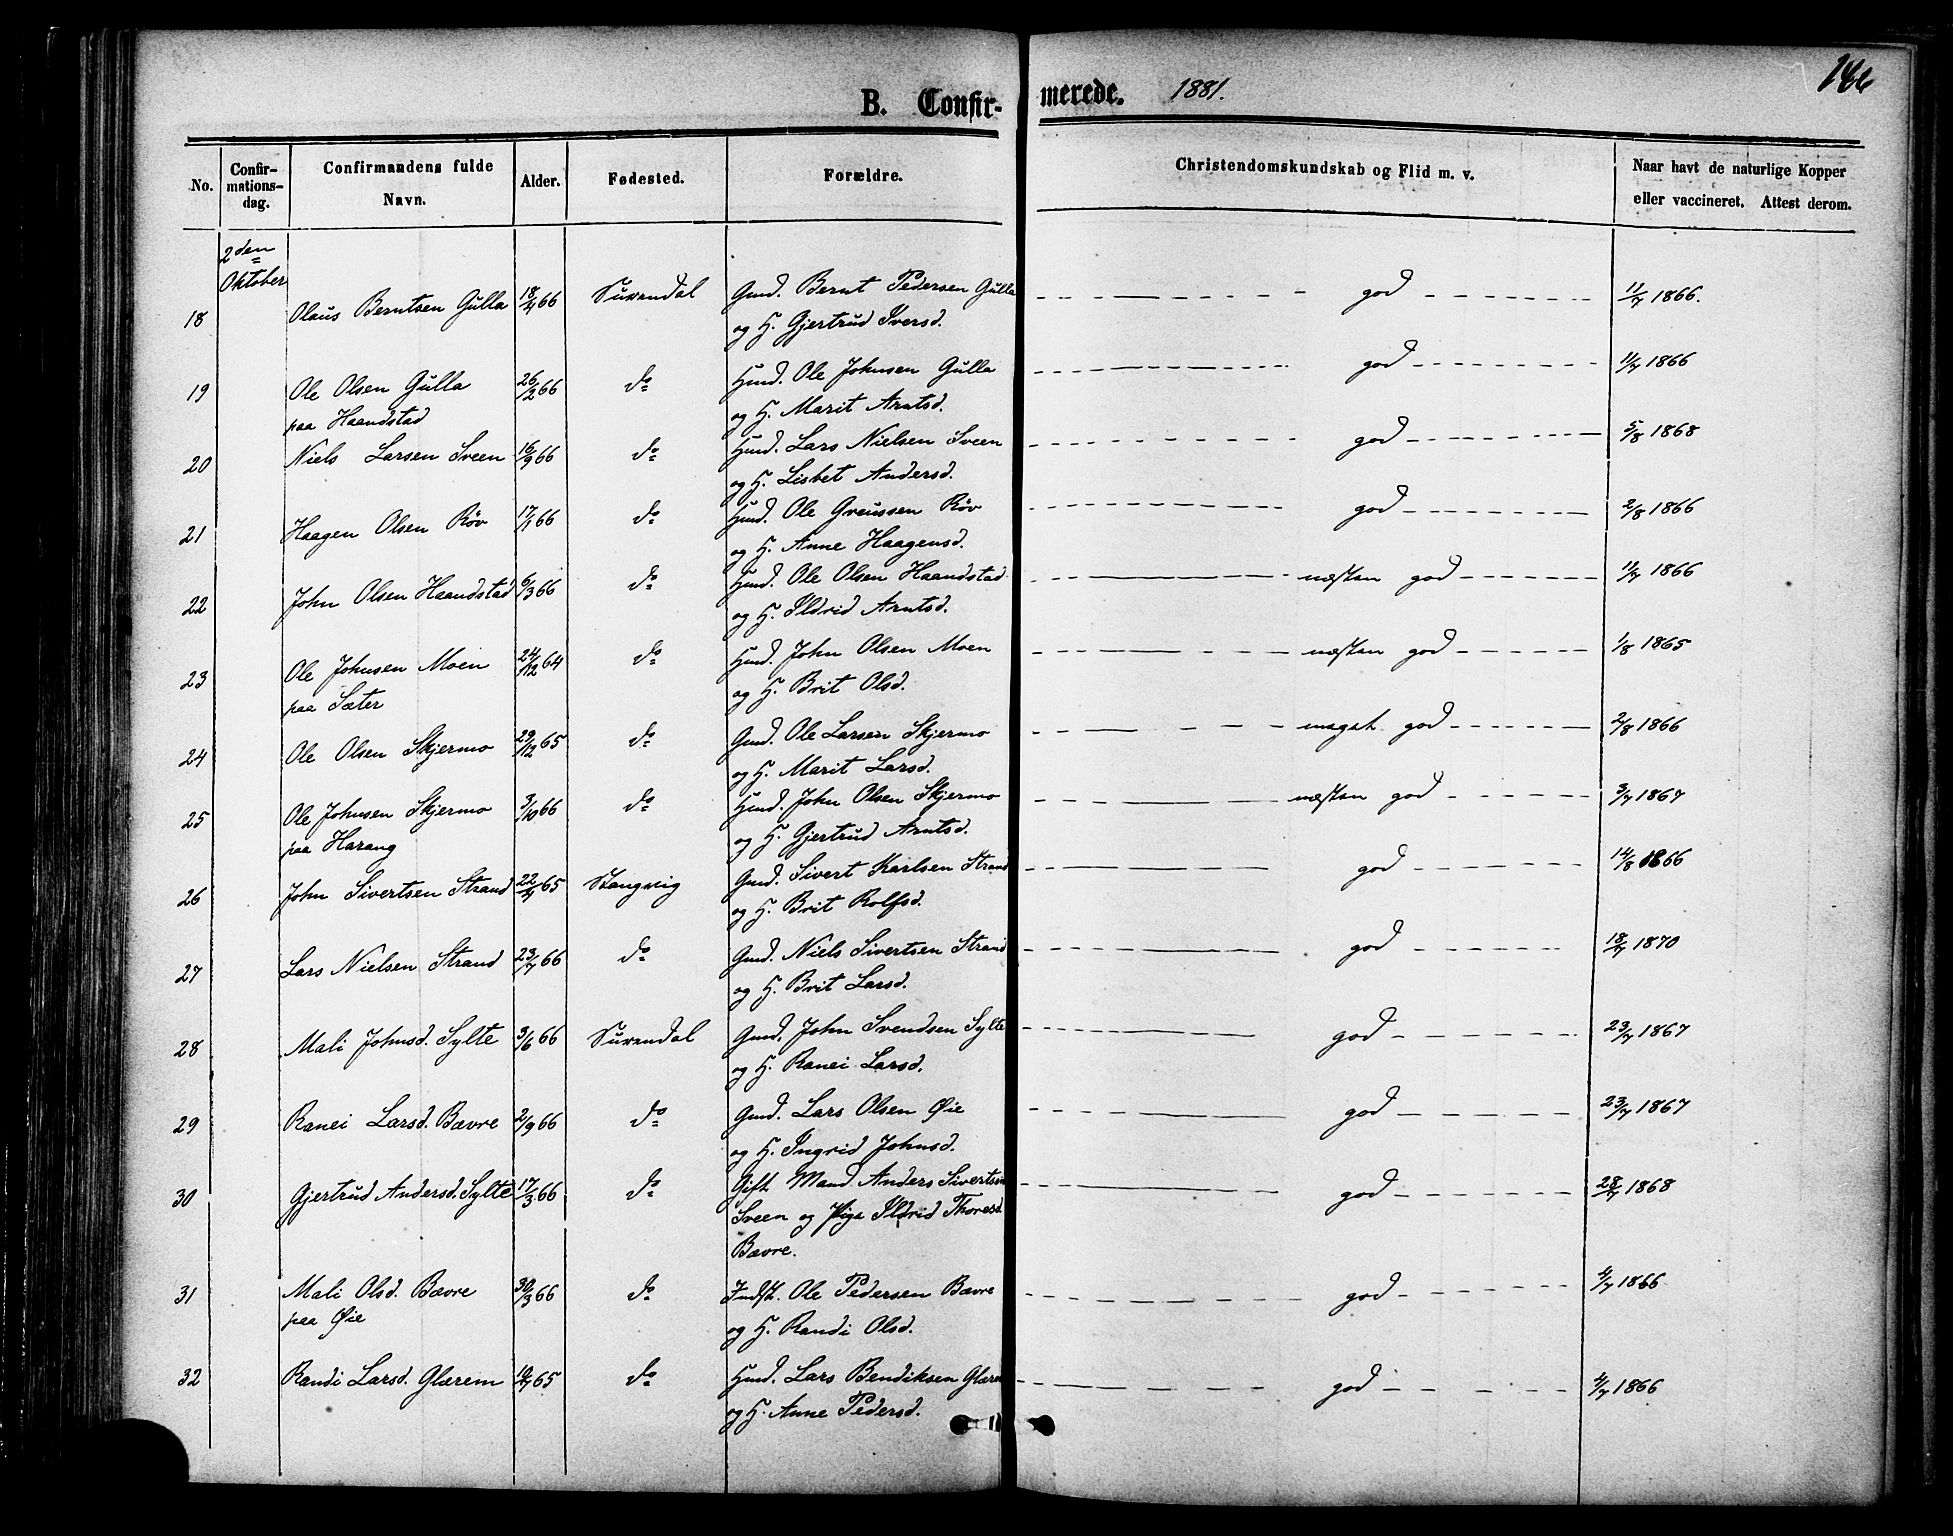 B. Confir-
merede. 1881.
166
No.
Confir-
mations-
dag.
Confirmandens fulde
Navn.
Alder.
Fødested.
Forældre.
Christendomskundskab og Flid m. v.
Naar havt de naturlige Kopper
eller vaccineret. Attest derom.
2den
Oktober
18 Olaus Berntsen Gulla 18/4 66 Surendal Gmd. Bernt Pedersen Gulla god 11/7 1866.
og H. Gjertrud Iversd.
19 Ole Olsen Gulla 26/2 66 do Hmd. Ole Johnsen Gulla god 11/7 1866
paa Haandstad og H. Marit Arntsd.
20 Niels Larsen Sveen 16/9 66 do Hmd. Lars Nielsen Sveen god 5/8 1868
og H. Lisbet Andersd.
21 Haagen Olsen Røv 17/1 66 do Hmd. Ole Greussen Røv god 2/8 1866
og H. Anne Haagensd.
22 John Olsen Haandstad 6/3 66 do Hmd. Ole Olsen Haandstad næsten god 11/7 1866
og H. Ildrid Arntsd.
23 Ole Johnsen Moen 24/12 64 do Hmd. John Olsen Moen næsten god 1/8 1865
paa Sæter og H. Brit Olsd.
24 Ole Olsen Skjermo 29/12 65 do Gmd. Ole Larsen Skjermo meget god 2/8 1866
og H. Marit Larsd.
25 Ole Johnsen Skjermo 3/10 66 do Hmd. John Olsen Skjermo næsten god 3/7 1867
paa Harang og H. Gjertrud Arntsd.
26 John Sivertsen Strand 22/4 65 Stangvig Gmd. Sivert Karlsen Strand god 14/8 1866
og H. Brit Rolfsd.
27 Lars Nielsen Strand 23/7 66 do Gmd. Niels Sivertsen Strand god 18/7 1870
og H. Brit Larsd.
28 Mali Johnsd. Sylte 3/6 66 Surendal Gmd. John Svendsen Sylte god 23/7 1867
og H. Ranei Larsd.
29 Ranei Larsd. Bævre 2/9 66 do Gmd. Lars Olsen Øie god 23/7 1867
og H. Ingrid Johnsd.
30 Gjertrud Andersd. Sylte 17/3 66 do Gift Mand Anders Sivertsen god 28/7 1868
Sveen og Pige Ildrid Thoresd.
Bævre.
31 Mali Olsd. Bævre 30/3 66 do Indst. Ole Pedersen Bævre god 4/7 1866
paa Øie og H. Randi Olsd.
32 Randi Larsd. Glærem 65 do Hmd. Lars Bendiksen Glærem god 4/7 1866
og H. Anne Pedersd.